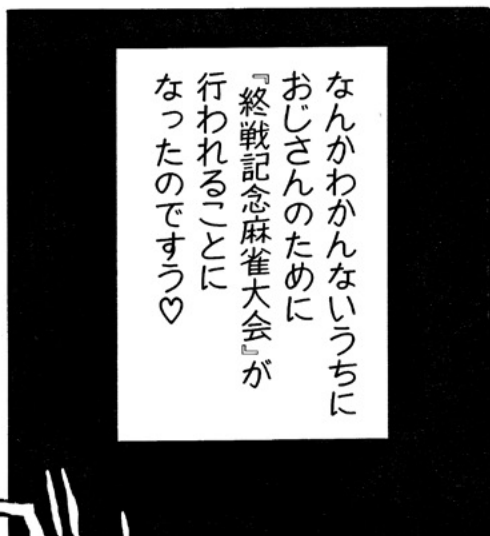 なんかわかんないうちに
おじさんのために
『終戦記念麻雀大会』が
行われることに
なったのですう♡